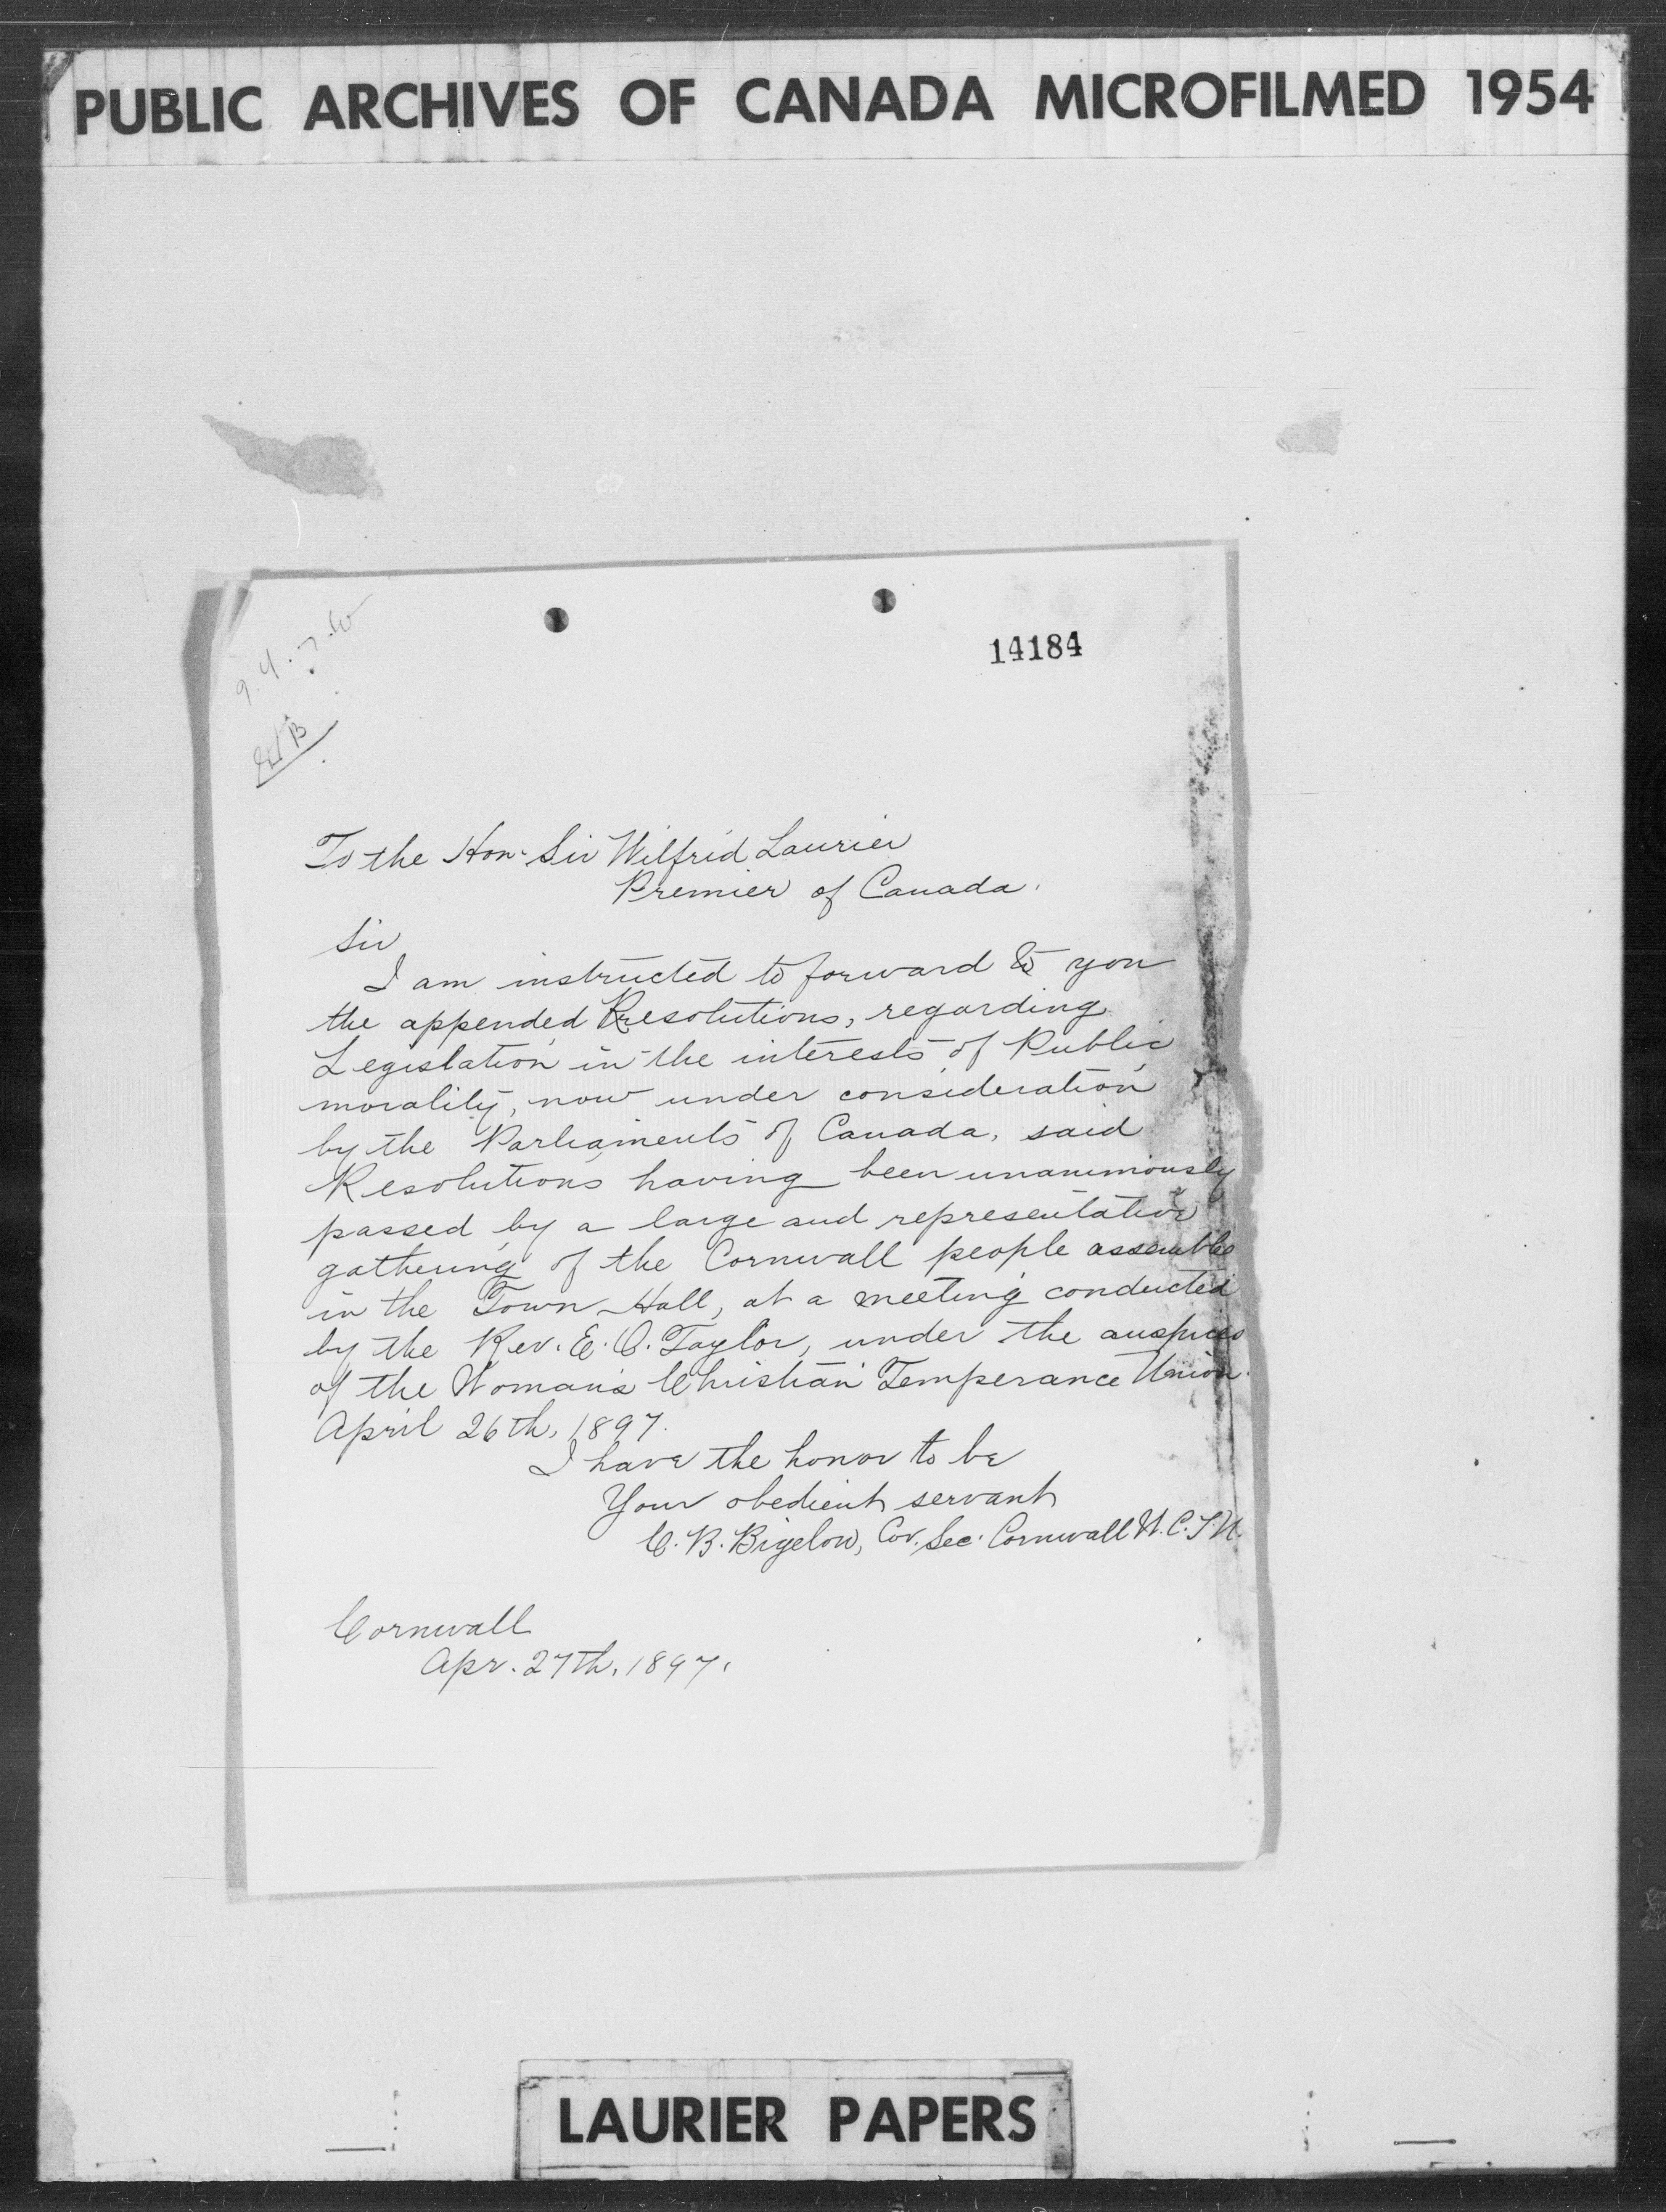 PUBLIC ARCHIVES OF CANADA MICROFILMED 1954
14184
To the Hon. Sir Wilfrid Laurier
Premier of Canada.
Sir
I am instructed to forward to you
the appended Resolutions, regarding
Legislation in the interests of Public
morality, now under consideration
by the Parliaments of Canada, said
Resolutions having been unanimously
passed by a large and representative
gathering of the Cornwall people assemble
in the Town Hall, at a meeting conducted
by the Rev. E. O. Taylor, under the auspices
of the Woman's Christian Temperance Union.
April 26th, 1897.
I have the honor to be
Your obedient servant
C. B. Bigelow, Cor. Sec. Cornwall W.C.T.U.
Cornwall
Apr. 27th, 1897.
LAURIER PAPERS